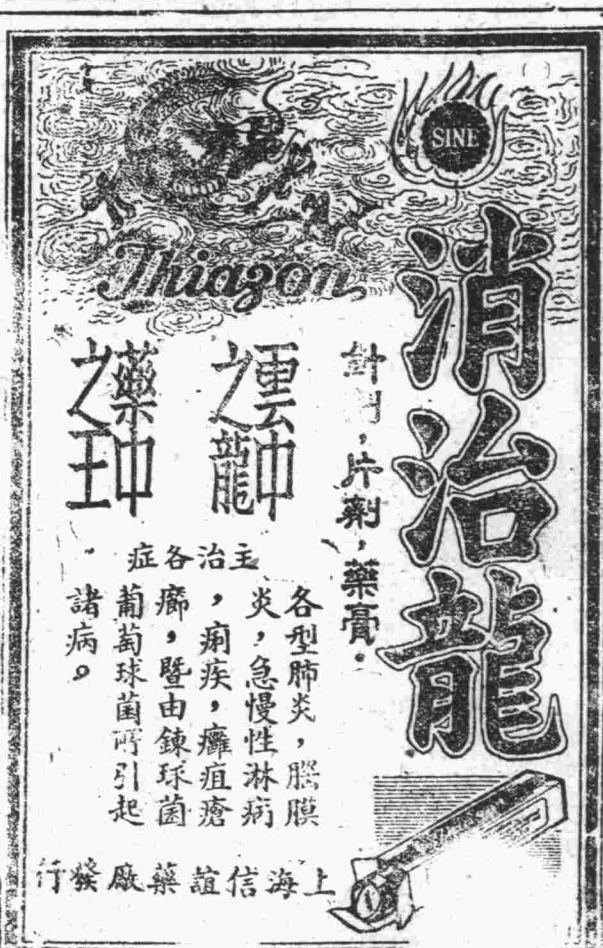 SINE
Thiazon
消治龍
針劑，片劑，藥膏。
雲中之龍
藥中之王
主治各症
各型肺炎，腦膜
炎，急慢性淋病
，痢疾，癰疽瘡
癤，暨由鍊球菌
葡萄球菌所引起
諸病。
上海信誼藥廠發行